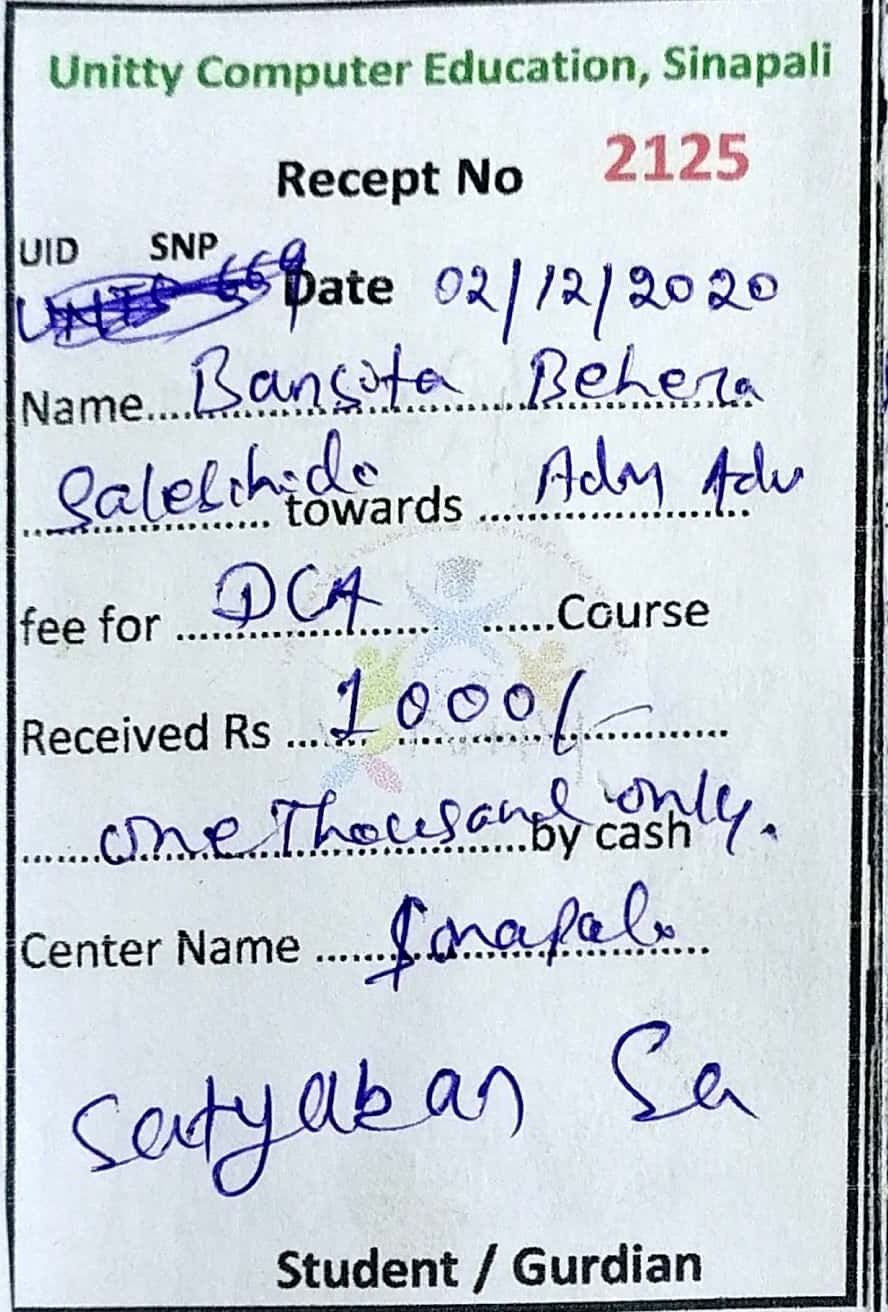 Unitty Computer Education, Sinapali
Recept No 2125
UID SNP
Date 02/12/2020
Name.... Bansuta Behera
............... towards Adm Adv
fee for DCA ......Course
Received Rs 1000/-
one Thousand only. by cash
Center Name Sinapali
Satyaban Sa
Student / Gurdian